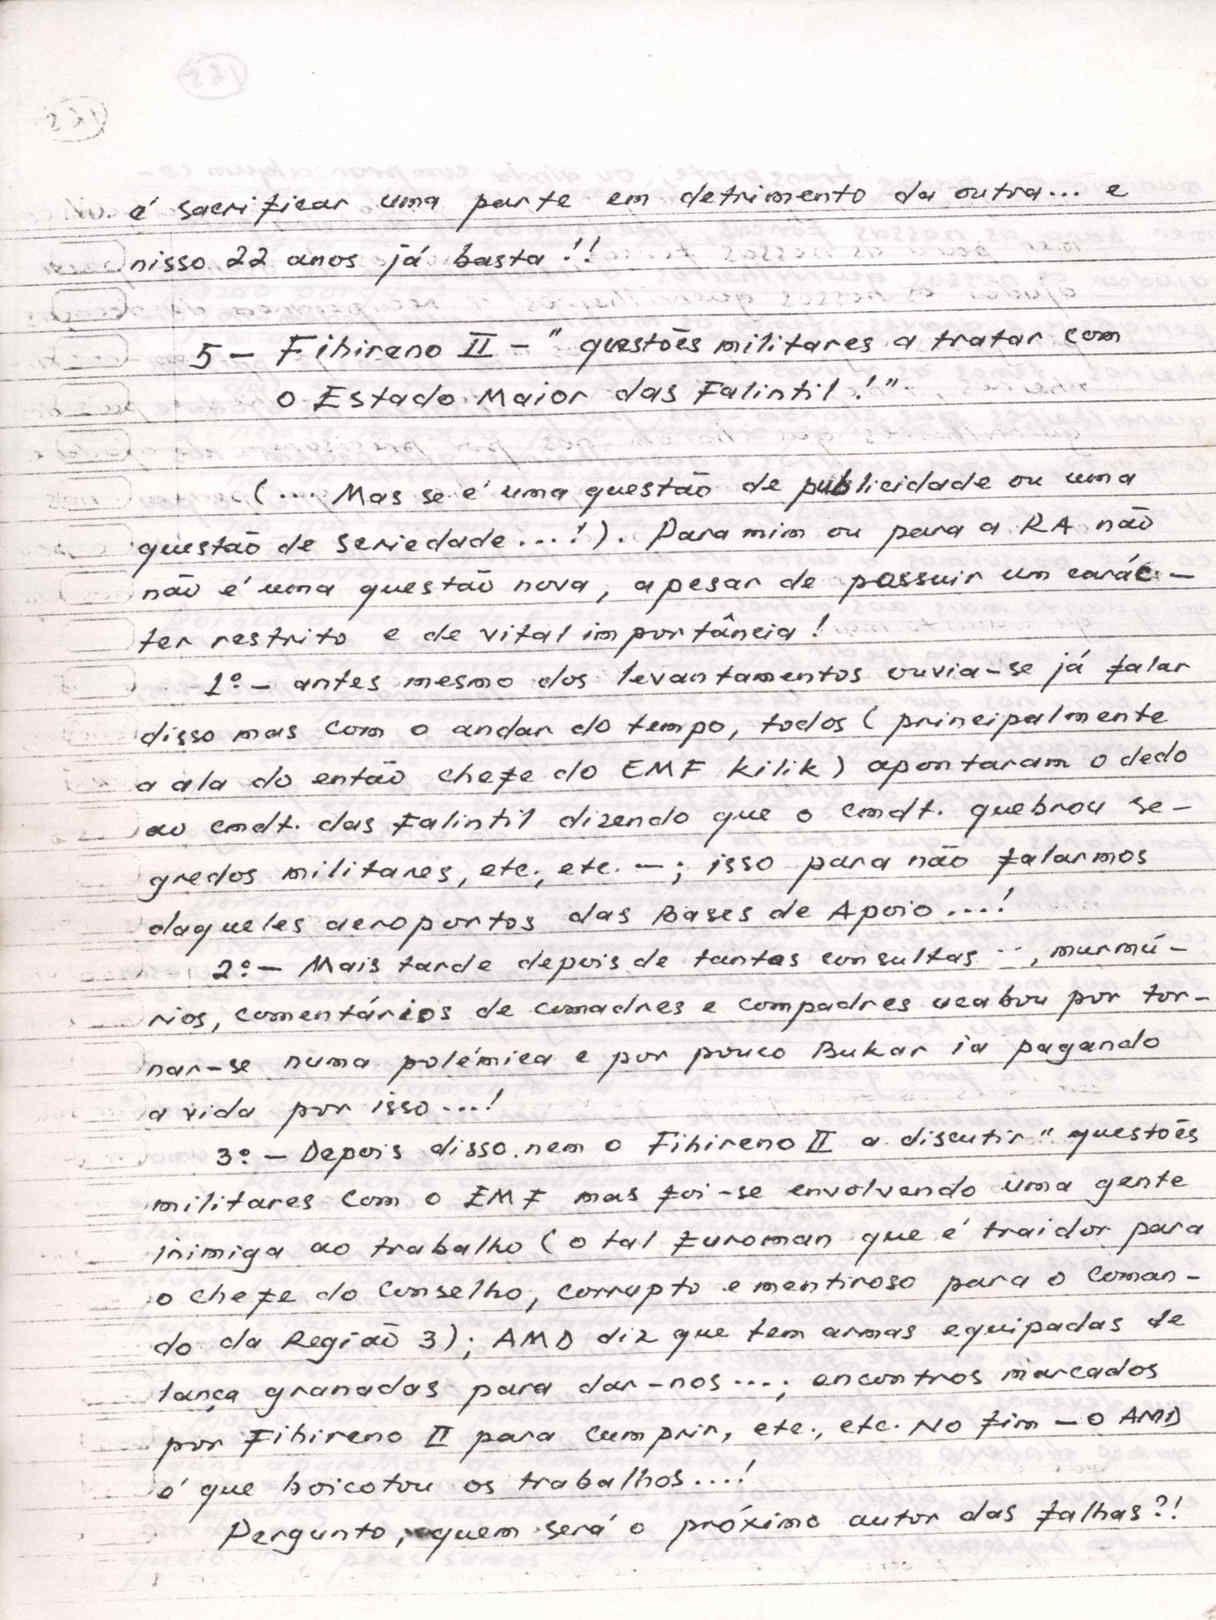 é sacrificar uma parte em detrimento da outra... e
nisso 22 anos já basta!!
5 - Fihireno II - " questões militares a tratar com
o Estado Maior das Falintil!".
(... Mas se é uma questão de publicidade ou uma
questão de seriedade...!). Para mim ou para a RA não
não é uma questão nova, apesar de possuir um carác-
ter restrito e de vital importância!
1º - antes mesmo dos levantamentos ouvia-se já falar
disso mas com o andar do tempo, todos ( principalmente
a ala do então chefe do EMF kilik) apontaram o dedo
ao cmdt. das Falintil dizendo que o cmdt. quebrou se-
gredos militares, etc., etc. -; isso para não falarmos
daqueles aeroportos das Bases de Apoio...!
2º - Mais tarde depois de tantas consultas .., murmú-
rios, comentários de comadres e compadres acabou por tor-
nar-se numa polémica e por pouco Bukar ia pagando
a vida por isso...!
3º - Depois disso nem o Fihireno II a discutir " questões
militares com o EMF mas foi-se envolvendo uma gente
inimiga ao trabalho ( o tal Furoman que é traidor para
o chefe do Conselho, corrupto e mentiroso para o Coman-
do da Região 3); AMD diz que tem armas equipadas de
lança granadas para dar-nos...; encontros marcados
por Fihireno II para cumprir, etc., etc. No fim - o AMD
é que boicotou os trabalhos...!
Pergunto, quem será o próximo autor das falhas?!